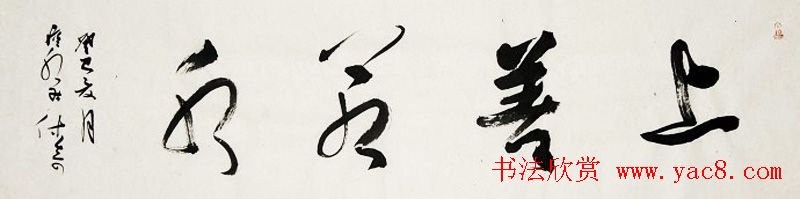 上善若水
癸巳夏月
书法欣赏 www.yac8.com